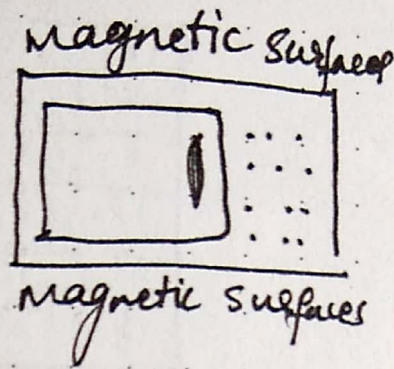 Magnetic Surfaces
Magnetic Surfaces